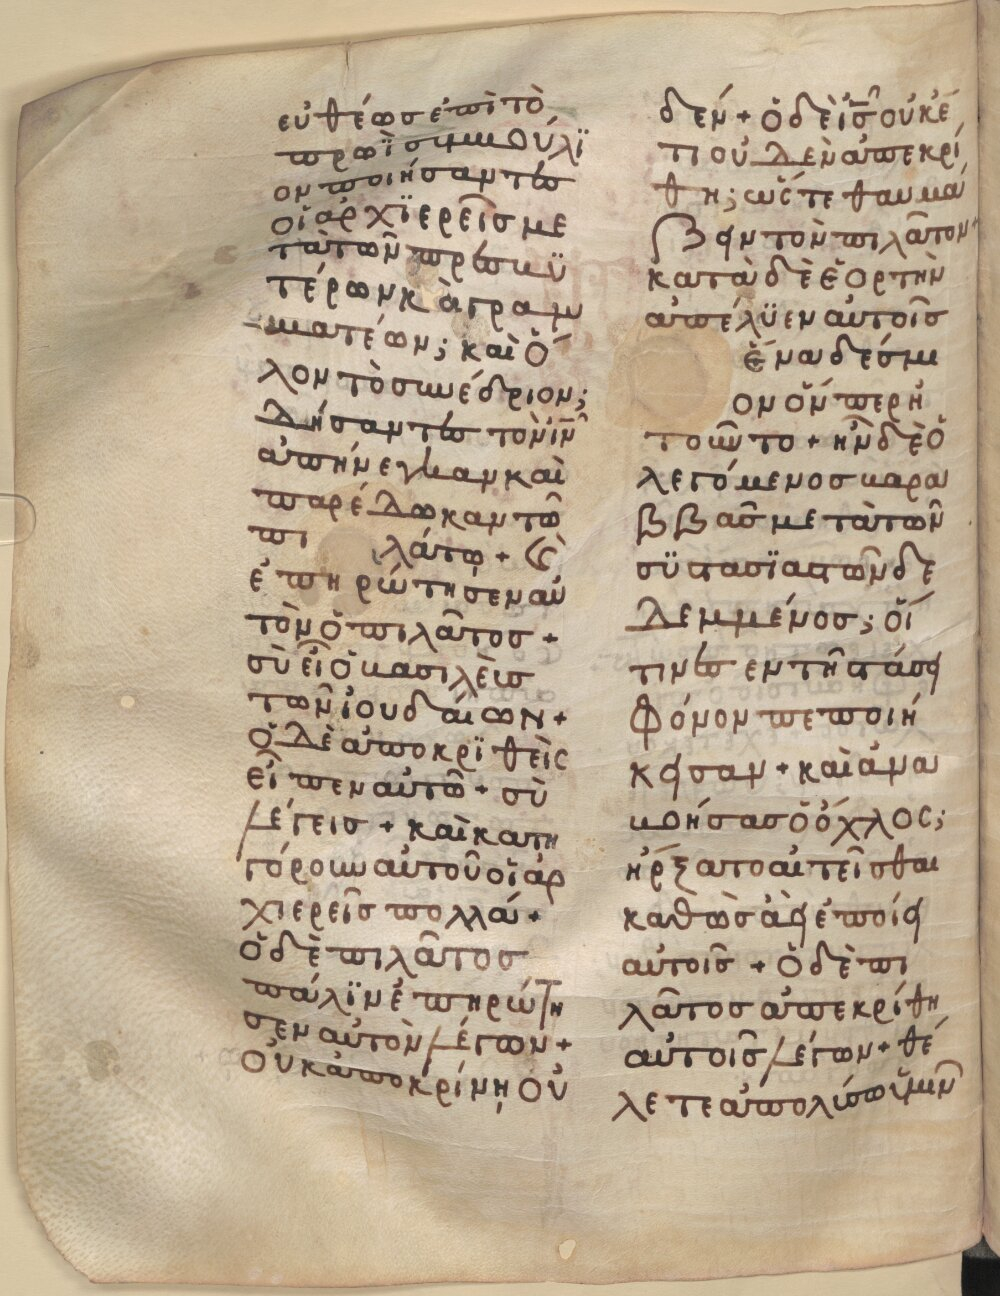 εὐθέωσ ἐπὶ τὸ
πρωῒ συμβούλϊ
ον ποιήσαντεσ
οἱ ἀρχϊερεῖσ με
τὰ τῶν πρεσβϋ
τέρων κ̀ αὶ γραμ
ματέων; καὶ ὅ
λον τὸ συνέδριον;
δήσαντεσ τὸν ἰῦ
ἀπήνεγκαν καὶ
παρέδωκαν τῶ
πι λάτω + Καὶ
ἐπηρώτησεν αὐ
τὸν ὁ πιλᾶτοσ +
σὺ εἶ ὁ βασιλεὺσ
τῶν ἰουδαίων +
ὁ δὲ ἀποκρϊθεὶς
εἶπεν αὐτῶ + σὺ
λέγεισ + καὶ κατη
γόρουν αὐτοῦ οἱ ἀρ
χιερεῖσ πολλά +
ὁ δὲ πιλᾶτοσ
πάλϊν ἐπηρώτη
σεν αὐτὸν λέγων +
Οὐκ ἀποκρίνῃ οὐ
δέν + ὁ δὲ ἰσ̄ οὐκέ
τι οὐδὲν ἀπεκρί
θη; ὥστε θαυμά
ζειν τὸν πιλᾶτον +
κατὰ δὲ ἑορτὴν
ἀπέλϋεν αὐτοῖσ
ἕνα δέσμι
ον ὅνπερ ἠ
τοῦντο + ἦν δὲ ὁ
λεγόμενοσ βαρα
ββᾶσ μετὰ τῶν
συστασϊαστῶν δε
δεμμένοσ; οἵ
τινεσ εν τῆ στάσει
φόνον πεποιή
κεισαν + καὶ ἀνα
βοήσασ ὁ ὄχλος;
ἠρξατο αἰτεῖσθαι
καθὼσ ἀεὶ ἐποίει
αὐτοῖσ + ὁ δὲ πι
λᾶτοσ ἀπεκρίθη
αὐτοῖσ λέγων + θέ
λετε ἀπολύσω ὑμῖν